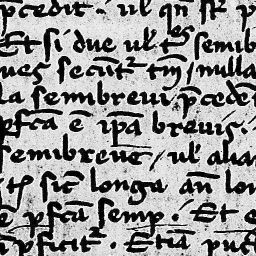 p̄cedit ul qn̄
Et si due ul tes semib
ues secūt² tm̄ / nulla
la semibreui p̄cedēt
p̱fca ē ip̄a breuis.
semibreue / ul alia
sic longa an̄ lon
ē p̱fca semp. Et
p̱ficit². Etiā